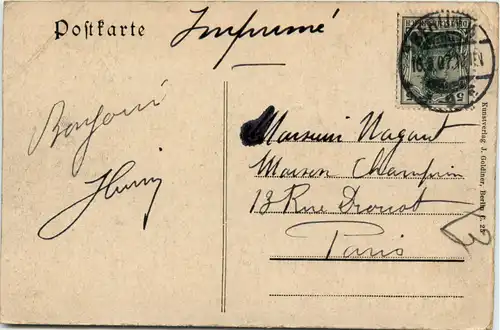 Postkarte
Imprimé
Bonjour
Henri
Monsieur Nagant
Maison Champin
13 Rue Drouot
Paris
Kunstverlag J. Goldiner, Berlin C. 25